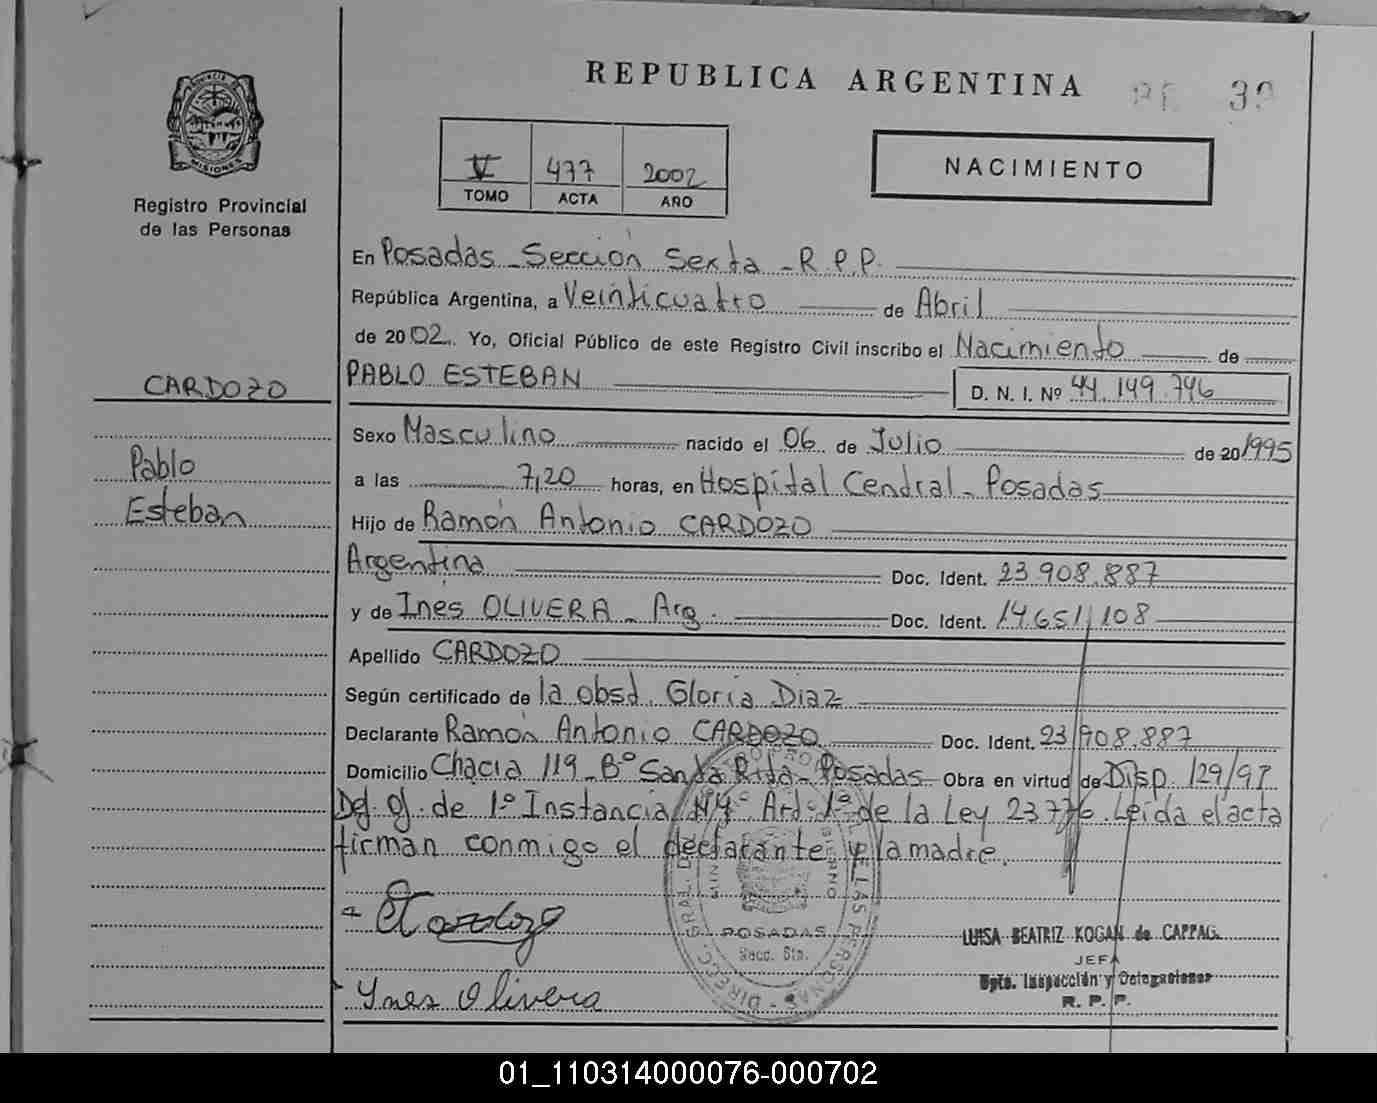 REPUBLICA ARGENTINA
39
PROVINCIA DE
MISIONES
Registro Provincial
de las Personas
V 477 2002
TOMO ACTA AÑO
NACIMIENTO
En Posadas - Sección Sexta - R.P.P.
República Argentina, a Veinticuatro de Abril
de 2002. Yo, Oficial Público de este Registro Civil inscribo el Nacimiento de
PABLO ESTEBAN D. N. I. Nº 44.149.746
CARDOZO
Pablo
Esteban
Sexo Masculino nacido el 06 de Julio de 20 1995
a las 7,20 horas, en Hospital Central - Posadas
Hijo de Ramón Antonio CARDOZO
Argentina Doc. Ident. 23.908.887
y de Ines OLIVERA - Arg. Doc. Ident. 14.651.108
Apellido CARDOZO
Según certificado de la obst. Gloria Diaz
Declarante Ramón Antonio CARDOZO Doc. Ident. 23.908.887
Domicilio Chacra 119 - Bº Santa Rita - Posadas Obra en virtud de Disp. 129/97
Def. Of. de 1º Instancia Nº4 - Art. 1º de la Ley 23.776. Leída el acta
firman conmigo el declarante y la madre.
Cardozo
Ines Olivera
POSADAS
Secc. 6ta.
LUISA BEATRIZ KOGAN de
JEFA
Dpto. Inspección y Delegaciones
R. P. P.
01_110314000076-000702